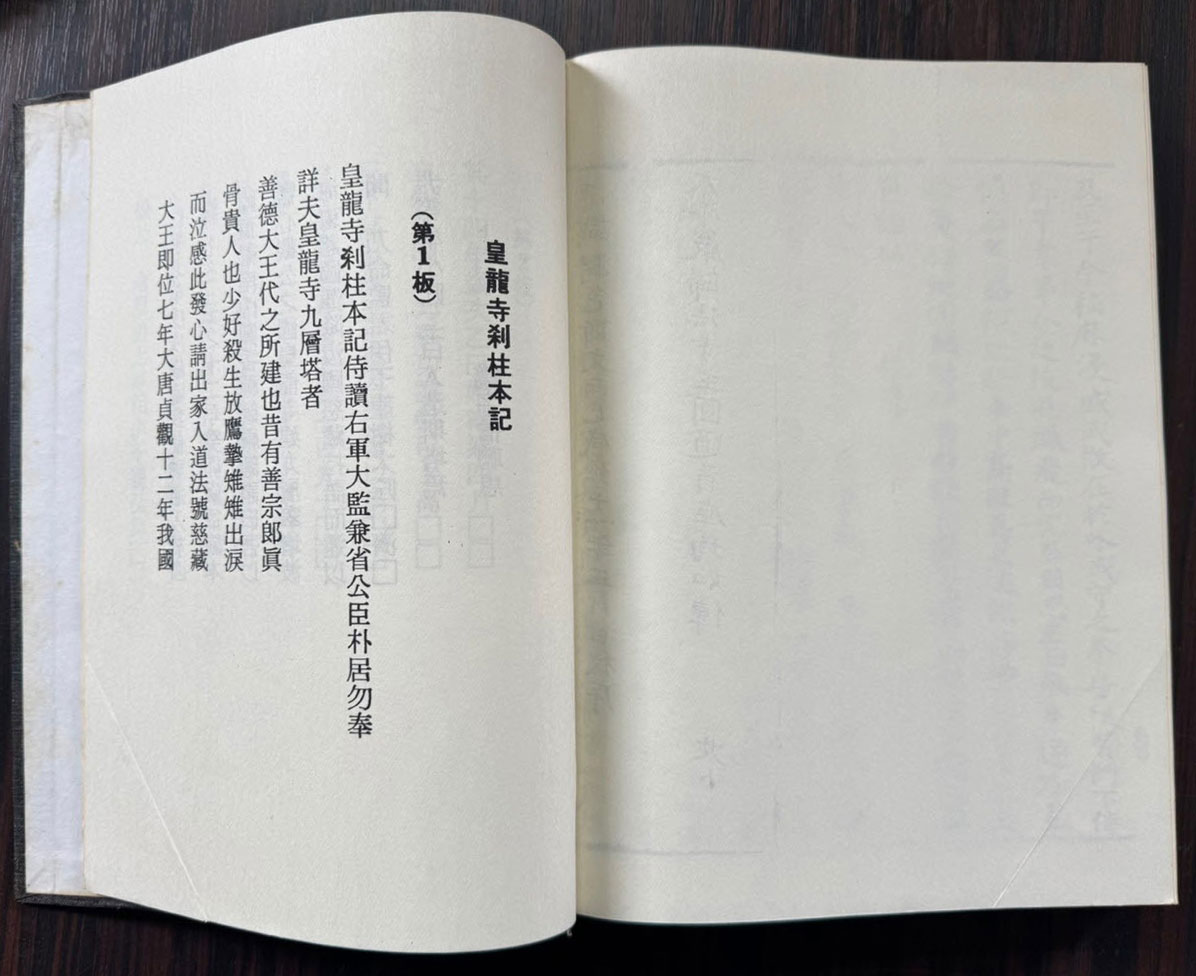 皇龍寺刹柱本記
(第1板)
皇龍寺刹柱本記侍讀右軍大監兼省公臣朴居勿奉
詳夫皇龍寺九層塔者
善德大王代之所建也昔有善宗郎眞
骨貴人也少好殺生放鷹摯雉雉出淚
而泣感此發心請出家入道法號慈藏
大王即位七年大唐貞觀十二年我國